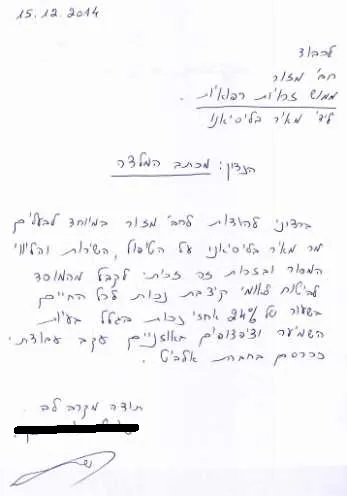 15.12.2014
לכבוד
חב' מזור
ממוש זכויות רפואיות.
לידי מאיר בליסיאנו
הנדון: מכתב המלצה
ברצוני להודות לחב' מזור במיוחד לבעלים
מר מאיר בליסיאנו על הטיפול, השירות והליווי
המסור ובזכות זה זכיתי לקבל מהמוסד
לביטוח לאומי קיצבת נכות לכל החיים
בשעור של 24% אחוזי נכות בגלל בעיות
השמיעה וציפצופים באוזניים עקב עבודתי.
ככרסם בחברת אלביט.
תודה מקרב לב